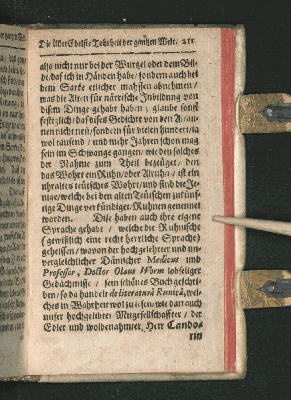 Die aller Edelste Tohrheit der gantzen Welt. 211
also nicht nur bei der Wurtzel oder dem Bil-
de, daß ich in Händen habe / sondern auch bei
dem Safte etlicher mahssen abnehmen /
was die Alten für närrische Inbildung von
disem Dinge gehabt haben; glaube sonst
festiglich / daß dises Gedichte von den Alrau-
nen nicht neü / sondern für vielen hundert / ja
wol tausend / und mehr Jahren schon mag
sein im Schwange gangen / wie den solches
der Nahme zum Theil bezeüget, den
das Wohrt ein Ruhn / ober Alruna / ist ein
uhraltes teütsches Wohrt / und sind die Je-
nige / welche bei den alten Teütschen zukünf-
tige Dinge verkündiget, Ruhnen genennet
worden. Dise haben auch ihre eigene
Sprache gehabt / welche die Ruhnische
(gewißlich eine recht herrliche Sprache)
geheissen / wovon der hochgelehrter und un-
vergleichlicher Dännischer Medicus und
Professor, Doctor Olaus Worm lobseliger
Gedächtnisse / sein schönes Buch geschri-
ben / so da handelt de literatura Runica, wel-
ches in Wahrheit wol zu lesen / wie dan auch
unser hochgeliebter Mitgesellschafter / der
Edler und wolbenahmter, Herr Cando-
rin